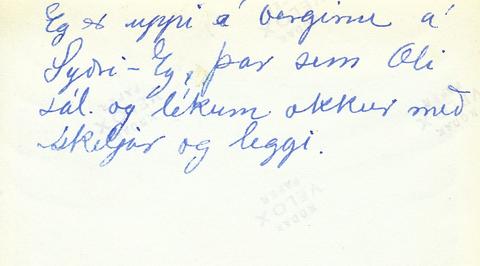 Eg er uppi á berginu á
Syðri-Ey, þar sem Oli
sál. og lékum okkur með
skeljar og leggi.
KODAK
VELOX
PAPER